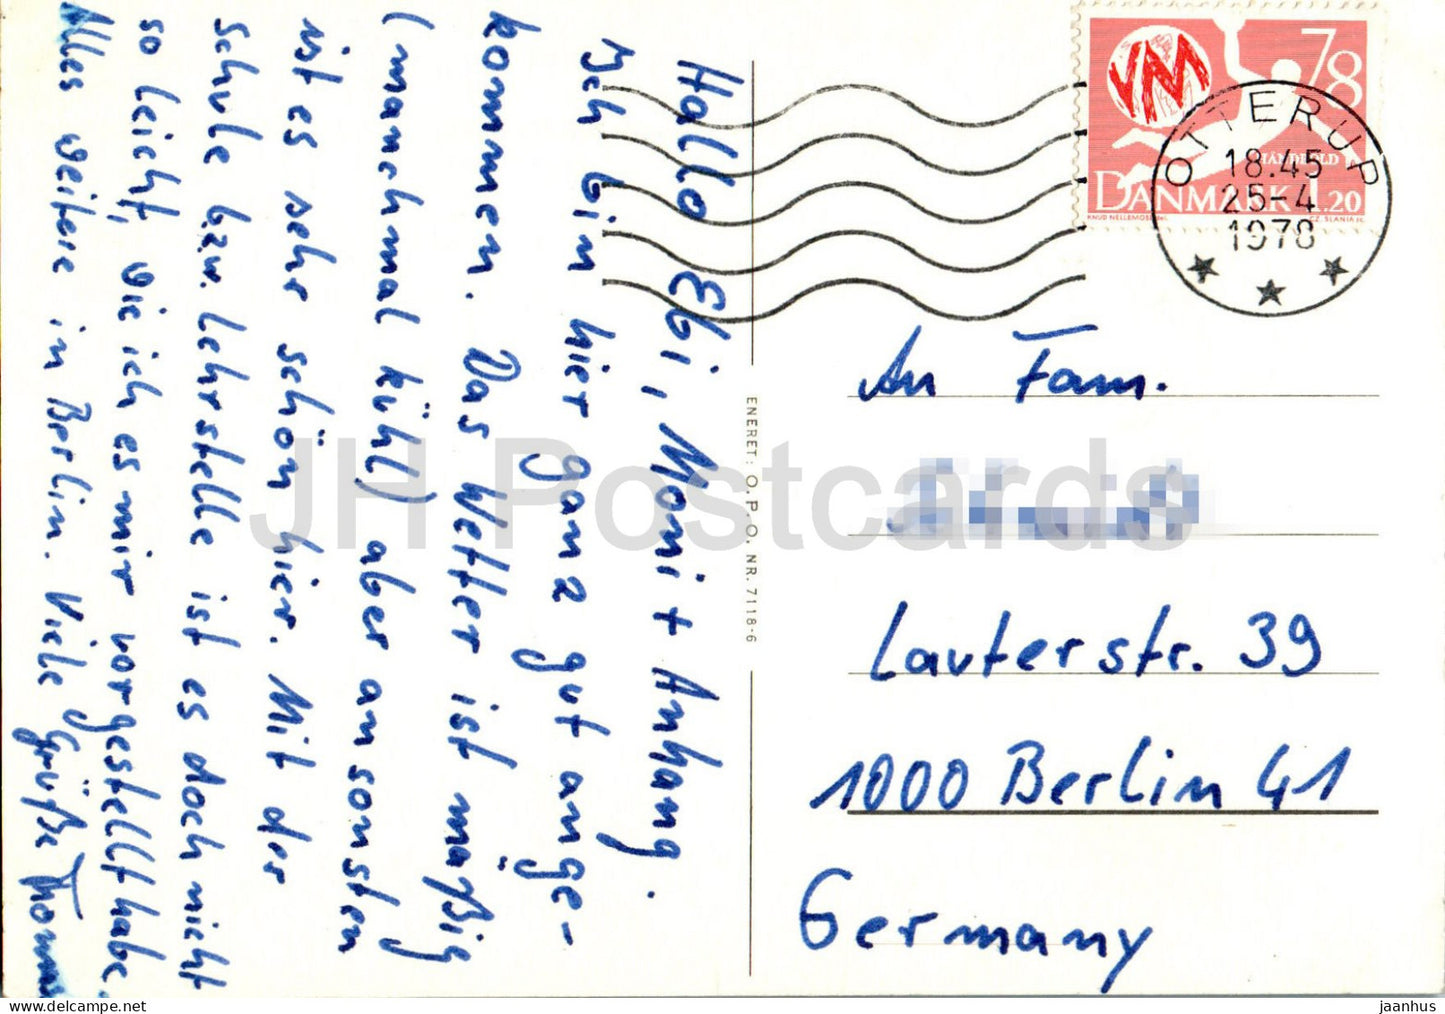 Hallo Ebi, Moni + Anhang.
Ich bin hier ganz gut ange-
kommen. Das Wetter ist mäßig
(manchmal kühl) aber ansonsten
ist es sehr schön hier. Mit der
Schule bzw. Lehrstelle ist es doch nicht
so leicht, wie ich es mir vorgestellt habe.
Alles weitere in Berlin. Viele Grüße Thomas
ENERET: O.P.O. NR. 7118-6
VM
78
HÅNDBOLD
DANMARK 1.20
KNUD NELLEMOSE del.
CZ. SLANIA sc.
OTTERUP
18.45
25-4
1978
An Fam.
Lauterstr. 39
1000 Berlin 41
Germany
JH Postcards
https://www.delcampe.net
jaanhus